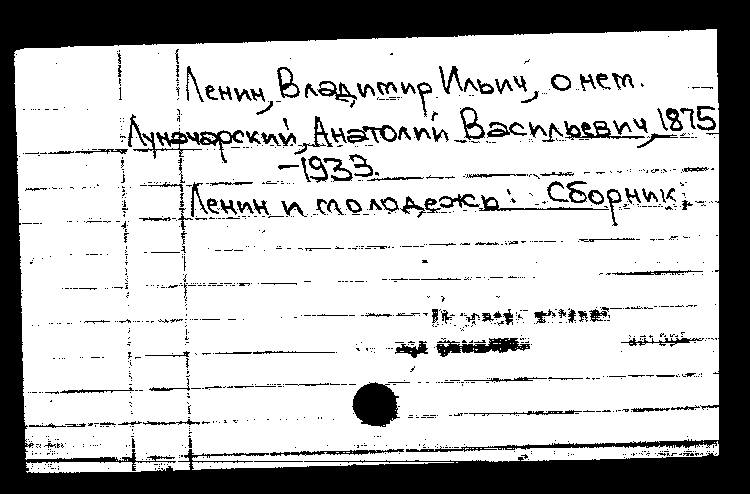 Ленин, Владимир Ильич, о нет.
Луначарский, Анатолий Васильевич, 1875
–1933.
Ленин и молодежь: Сборник.
автора